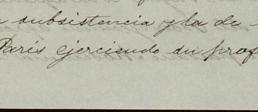 subsistencia y la de-
Paris ejerciendo su prof